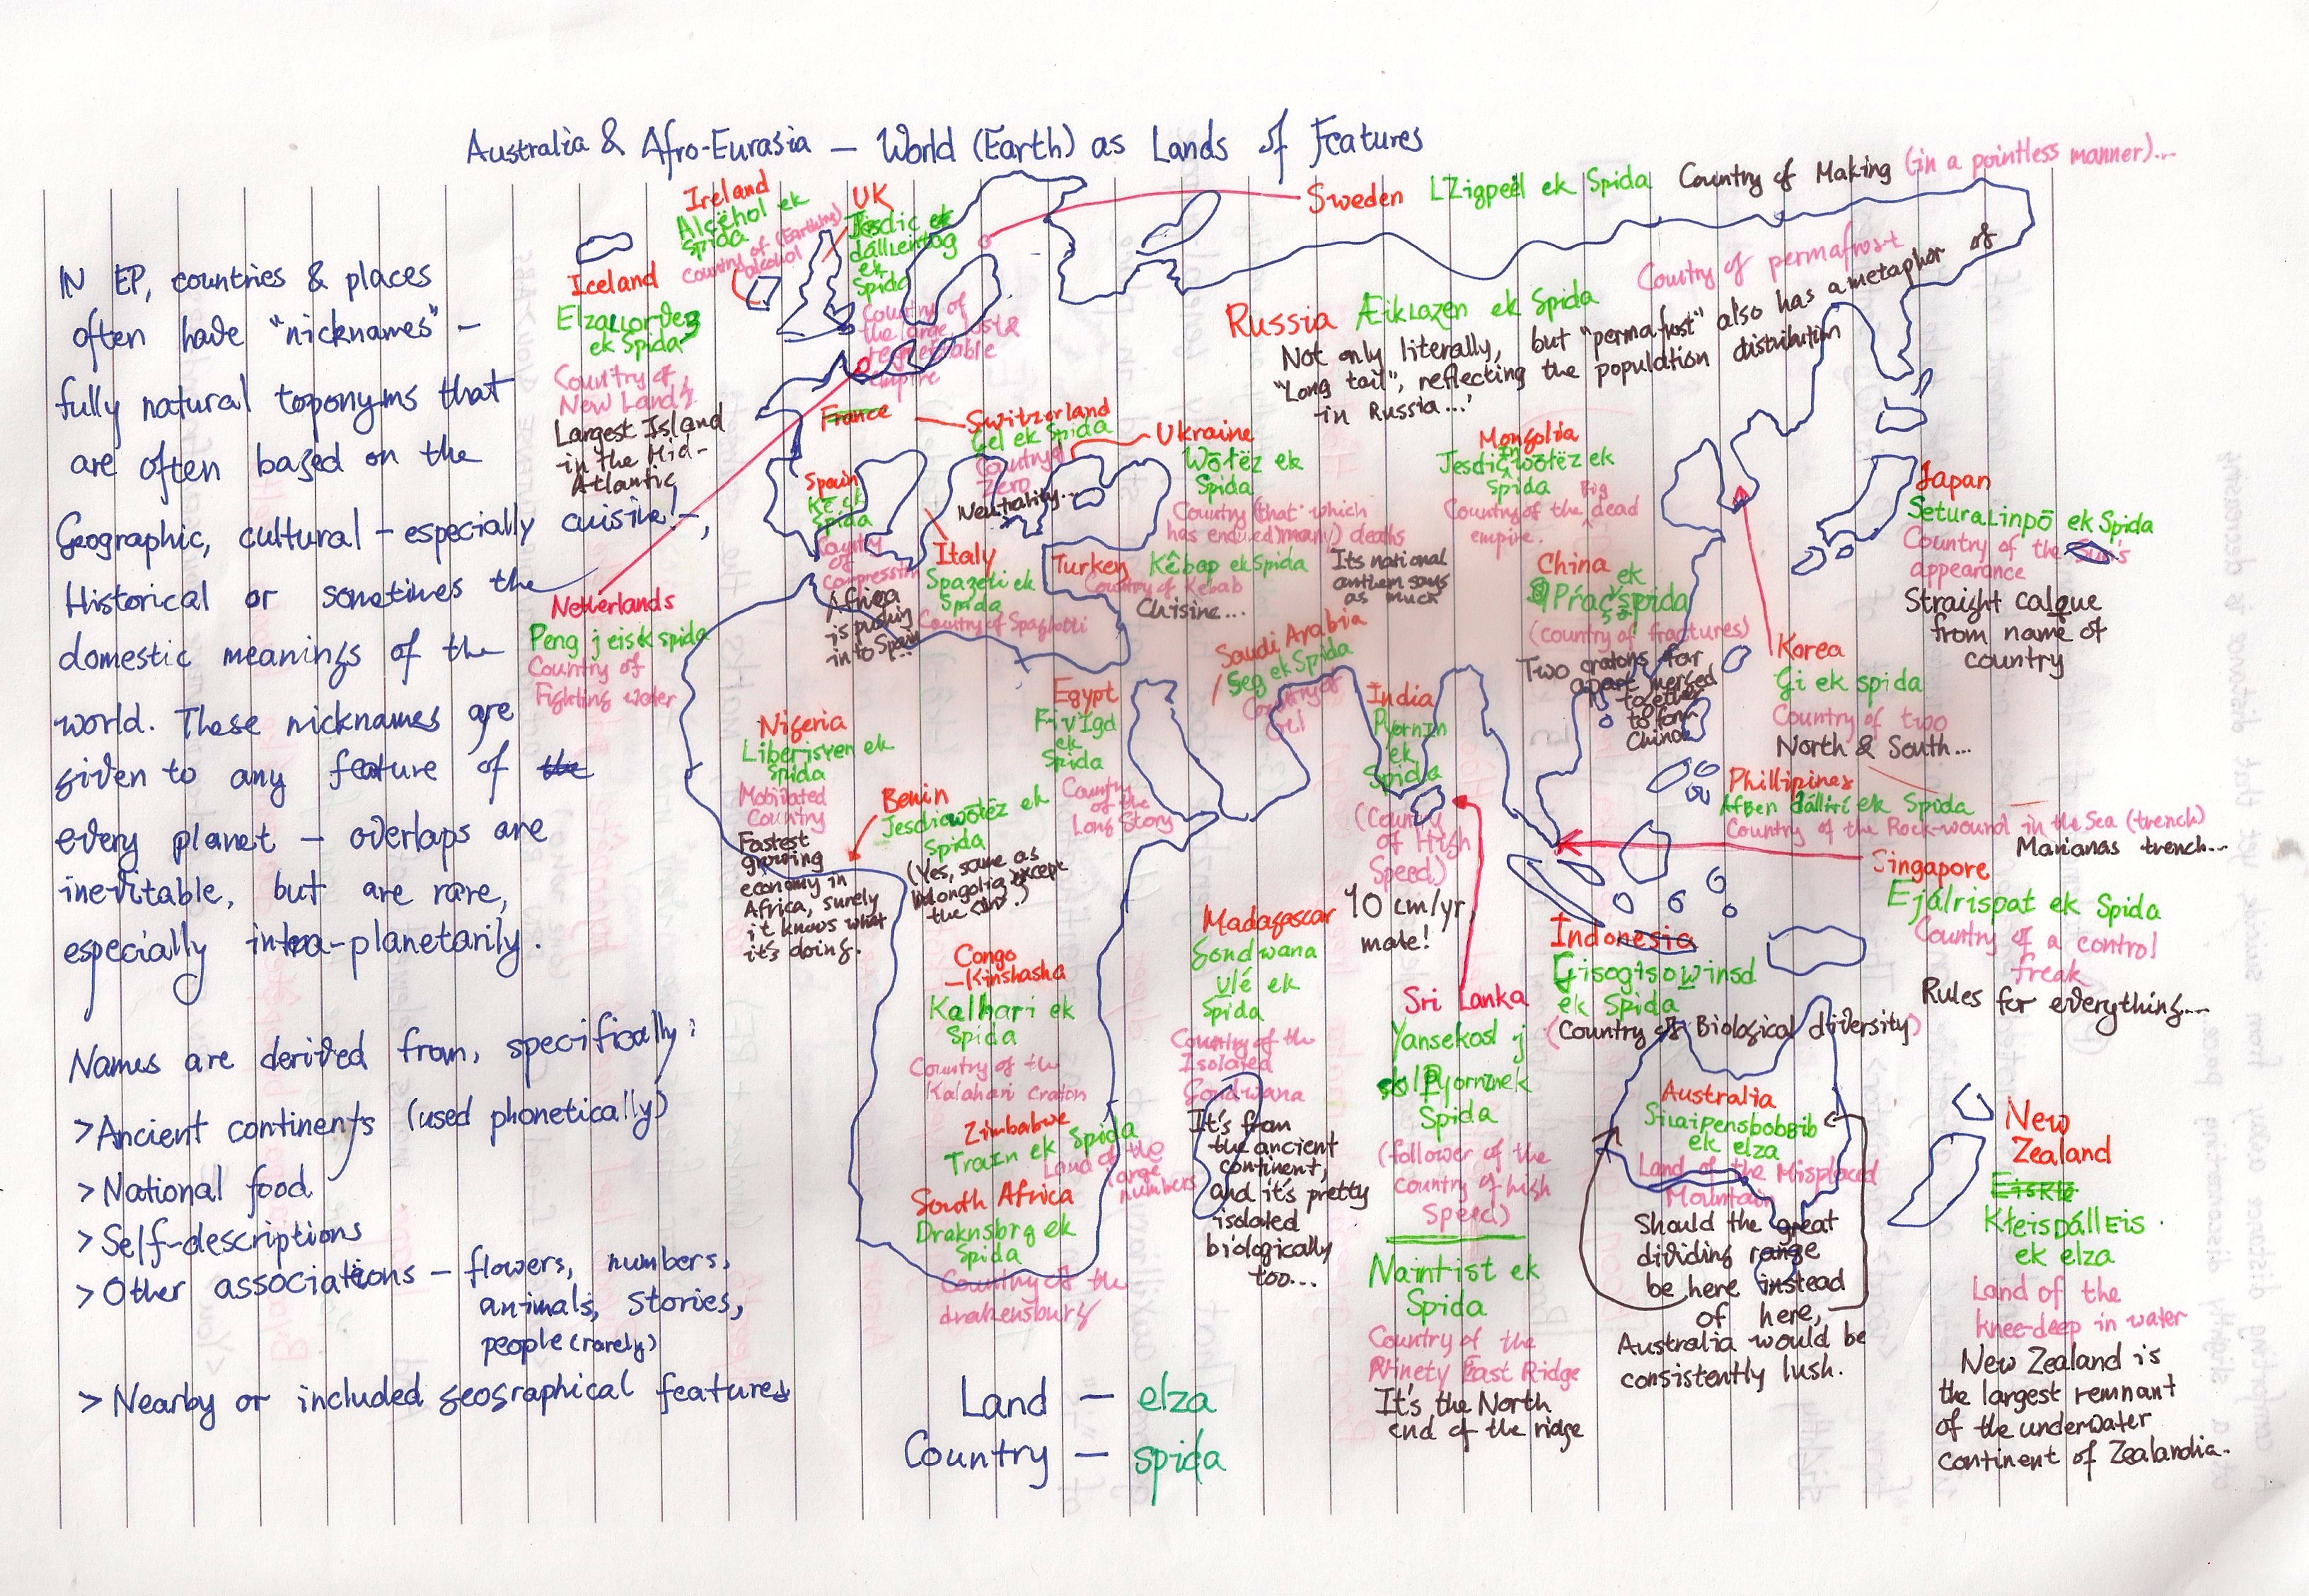 Australia & Afro-Eurasia — World (Earth) as Lands of Features
IN EP, countries & places
often have "nicknames" —
fully natural toponyms that
are often based on the
Geographic, cultural - especially cuisine! -,
Historical or sometimes the
domestic meanings of the
world. These nicknames are
given to any feature of the
every planet — overlaps are
inevitable, but are rare,
especially intra-planetarily.
Names are derived from, specifically:
> Ancient continents (used phonetically)
> National food
> Self-descriptions
> Other associations — flowers, numbers,
animals, stories,
people (rarely)
> Nearby or included geographical features
Land — elza
Country — spida
Iceland
ek Spida
Country of
New Lands
Largest Island
in the Mid-
Atlantic
Ireland
Alcëhol ek
Spida
Country of (Earthling)
alcohol
UK
Jesdic ek
dállentog
ek
Spida
Country of
the large, lost &
respectable
empire
Sweden LZigpeël ek Spida Country of Making (in a pointless manner)...
Russia Æiklazen ek Spida Country of permafrost
Not only literally, but "permafrost" also has a metaphor of
"Long tail", reflecting the population distribution
in Russia...
Netherlands
Peng j eisek spida
Country of
Fighting water
France
Switzerland
Gel ek Spida
Country of
zero
Neutrality...
Ukraine
Wōtëz ek
Spida
Country (that which
has endured many) deaths
Its national
anthem says
as much
Mongolia
Jesdicwōtëz ek
Spida
Country of the Big dead
empire.
Spain
Kë ek
Spida
Country
of
compression
Africa
is pushing
into Spain
Italy
Spazeti ek
Spida
Country of Spaghetti
Turkey Kêbap ek Spida
Country of Kebab
Cuisine...
China
ek
Spida
(country of fractures)
Two cratons far
apart merged
together
to form
China
Japan
Seturalinpō ek Spida
Country of the Sun's
appearance
Straight calque
from name of
country
Korea
Gi ek spida
Country of two
North & South...
Saudi Arabia
Seg ek Spida
Country of
Oil
Egypt
Fivigd
ek
Spida
Country
of the
Long Story
Nigeria
Liberisven ek
Spida
Motivated
Country
Fastest
growing
economy in
Africa, surely
it knows what
it's doing.
Benin
Jesdicwōtëz ek
Spida
(Yes, same as
Mongolia except
the
India
Pyornin
ek
Spida
(Country
of High
Speed)
40 cm/yr,
mate!
Phillipines
Afben dállírí ek Spida
Country of the Rock-wound in the Sea (trench)
Marianas trench...
Singapore
Ejálrispat ek Spida
Country of a control
freak
Rules for everything...
Indonesia
Gisogisowinsd
ek Spida
(Country of Biological diversity)
Congo
-Kinshasha
Kalhari ek
Spida
Country of the
Kalahari Craton
Zimbabwe
Train ek Spida
Land of the
large
numbers
South Africa
Draknsbrg ek
Spida
Country of the
drakensburg
Madagascar
Gondwana
ulé ek
Spida
Country of the
Isolated
Gondwana
It's from
the ancient
continent,
and it's pretty
isolated
biologically
too...
Sri Lanka
Yansekosl j
Pyorninek
Spida
(follower of the
country of high
Speed)
Naintist ek
Spida
Country of the
Ninety East Ridge
It's the North
end of the ridge
Australia
Silaipensbobbib
ek elza
Land of the Misplaced
Mountain
Should the great
dividing range
be here instead
of here,
Australia would be
consistently lush.
New
Zealand
Kteispállëis
ek elza
Land of the
knee-deep in water
New Zealand is
the largest remnant
of the underwater
continent of Zealandia.